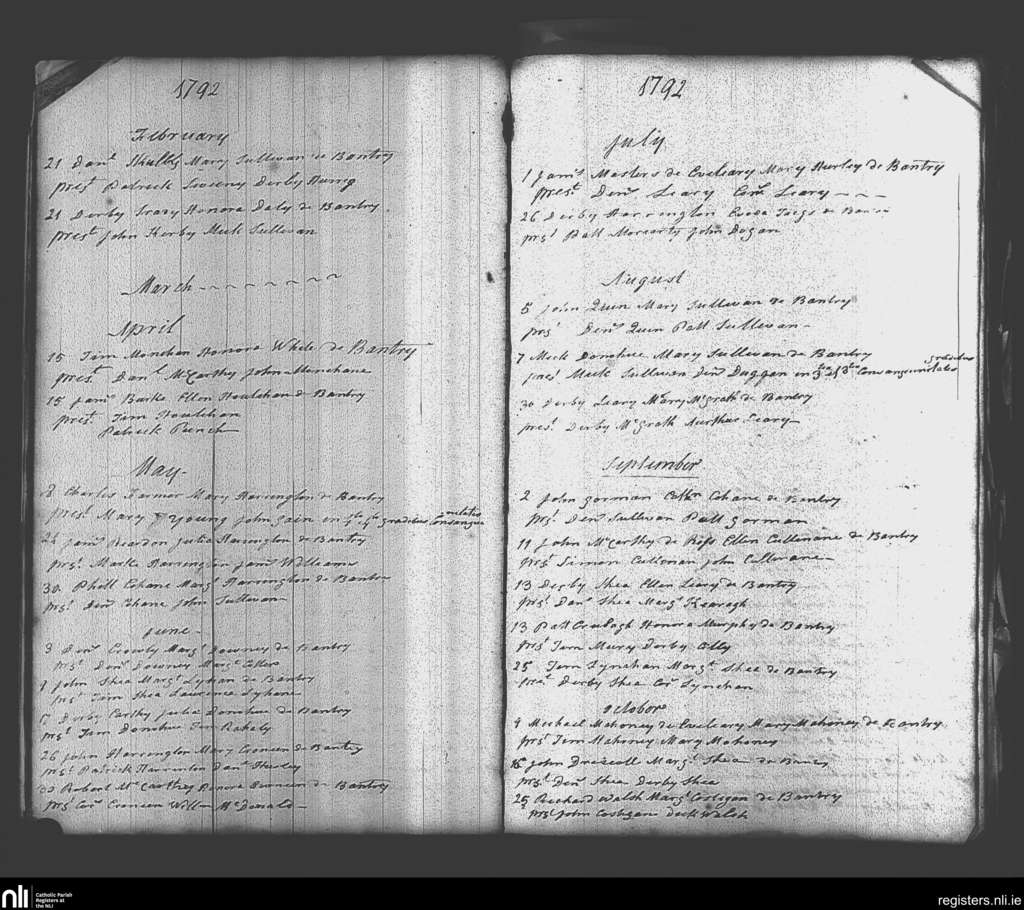 1792
February
21 Danl Mary Sullivan de Bantry
prest Patrick Sweeny Derby
21 Derby Honora Daly de Bantry
prest John Kerby Mick Sullivan
March
April
15 Tim Monehan Honora White de Bantry
prest Danl McCarthy John Monehane
15 Jams Burke Ellen Houlihan de Bantry
prest Tim Houlihan
Patrick Punch
May
8 Charles Farmer Mary Harrington de Bantry
prest Mary Young John in 4to 4to gradibus consangui
nitatis
24 Jams Reardon Julia Harrington de Bantry
prst Mark Harrington Jams Williams
30 Phill Cohane Margt Harrington de Bantry
prst Denis John Sullivan
June
3 Denis Crowly Margt Downey de Bantry
prst Denis Downey Margt
John Shea Margt Lyhan de Bantry
prst Tim Shea Laurence Lyhane
Derby Carthy Julia Donohue de Bantry
prst Tim Donohue Tim
26 John Harrington Mary Croneen de Bantry
prst Patrick Harrinton Danl
30 Robert McCarthy Honora Croneen de Bantry
prst Cors Croneen Willm McDonald
1792
July
1 Jams Masters de Eveleary Mary Hurley de Bantry
prest Denis Leary Cors Leary
26 Derby Harrington de Bantry
prst Patt Moriarty John Dogan
August
5 John Quin Mary Sullivan de Bantry
prst Denis Quin Patt Sullivan
7 Mick Donohue Mary Sullivan de Bantry
prest Mick Sullivan Denis Duggan in 3tio et 3tio Consanguinitatis
gradibus
30 Derby Leary Mary McGrath de Bantry
prest Derby McGrath Aurthur Leary
September
2 John Gorman Cathn Cohane de Bantry
prst Denis Sullivan Patt Gorman
11 John McCarthy de Ross Ellen Cullinane de Bantry
prst Simon John Cullinane
13 Derby Shea Ellen Leary de Bantry
prst Danl Shea Margt
13 Patt Honora Murphy de Bantry
prst Tam Murry Derby
25 Tim Lynehan Margt Shea de Bantry
prst Derby Shea Cors Lynehan
October
4 Michael Mahoney de Eveleary Mary Mahoney de Bantry
prst Tim Mahoney Mary Mahoney
15 John Driscoll Margt Shea de
prst Denis Shea Derby Shea
25 Richard Walsh Margt Costigan de Bantry
prst John Costigan Dick Walsh
nli
Catholic Parish
Registers at
the NLI
registers.nli.ie